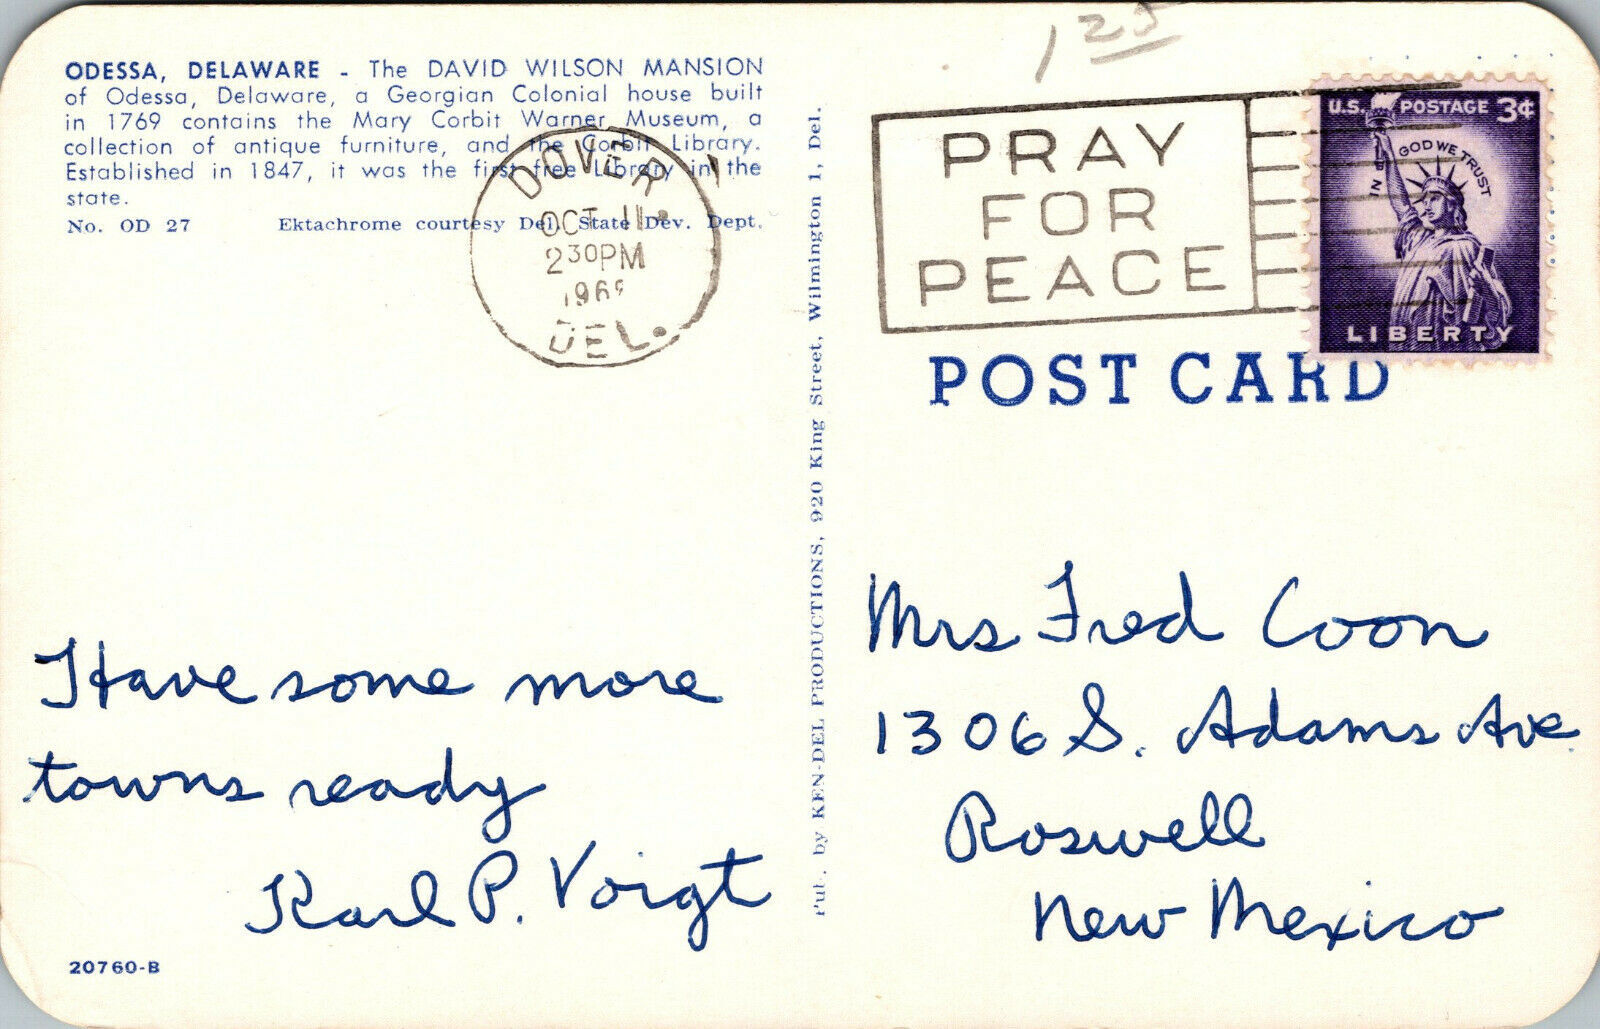 1 25
ODESSA, DELAWARE - The DAVID WILSON MANSION
of Odessa, Delaware, a Georgian Colonial house built
in 1769 contains the Mary Corbit Warner Museum, a
collection of antique furniture, and the Corbit Library.
Established in 1847, it was the first free Library in the
state.
No. OD 27 Ektachrome courtesy Del. State Dev. Dept.
DOVER
OCT 11
2 30 PM
DEL.
Have some more
towns ready
Karl P. Voigt
20760-B
Pub. by KEN-DEL PRODUCTIONS, 920 King Street, Wilmington 1, Del.
PRAY
FOR
PEACE
U.S. POSTAGE 3¢
IN GOD WE TRUST
LIBERTY
POST CARD
Mrs Fred Coon
1306 S. Adams Ave.
Roswell
New Mexico